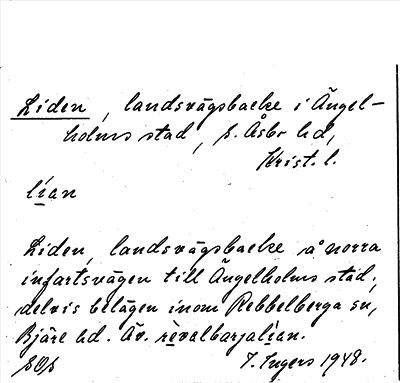 Liden, landsvägsbacke i Ängel-
holms stad, S. Åsbo hd,
Krist. l.
lian
Liden, landsvägsbacke å norra
infartsvägen till Ängelholms stad,
delvis belägen inom Rebbelberga sn,
Bjäre hd. Äv. rèvalbarjalían.
T. Ingers 1948.